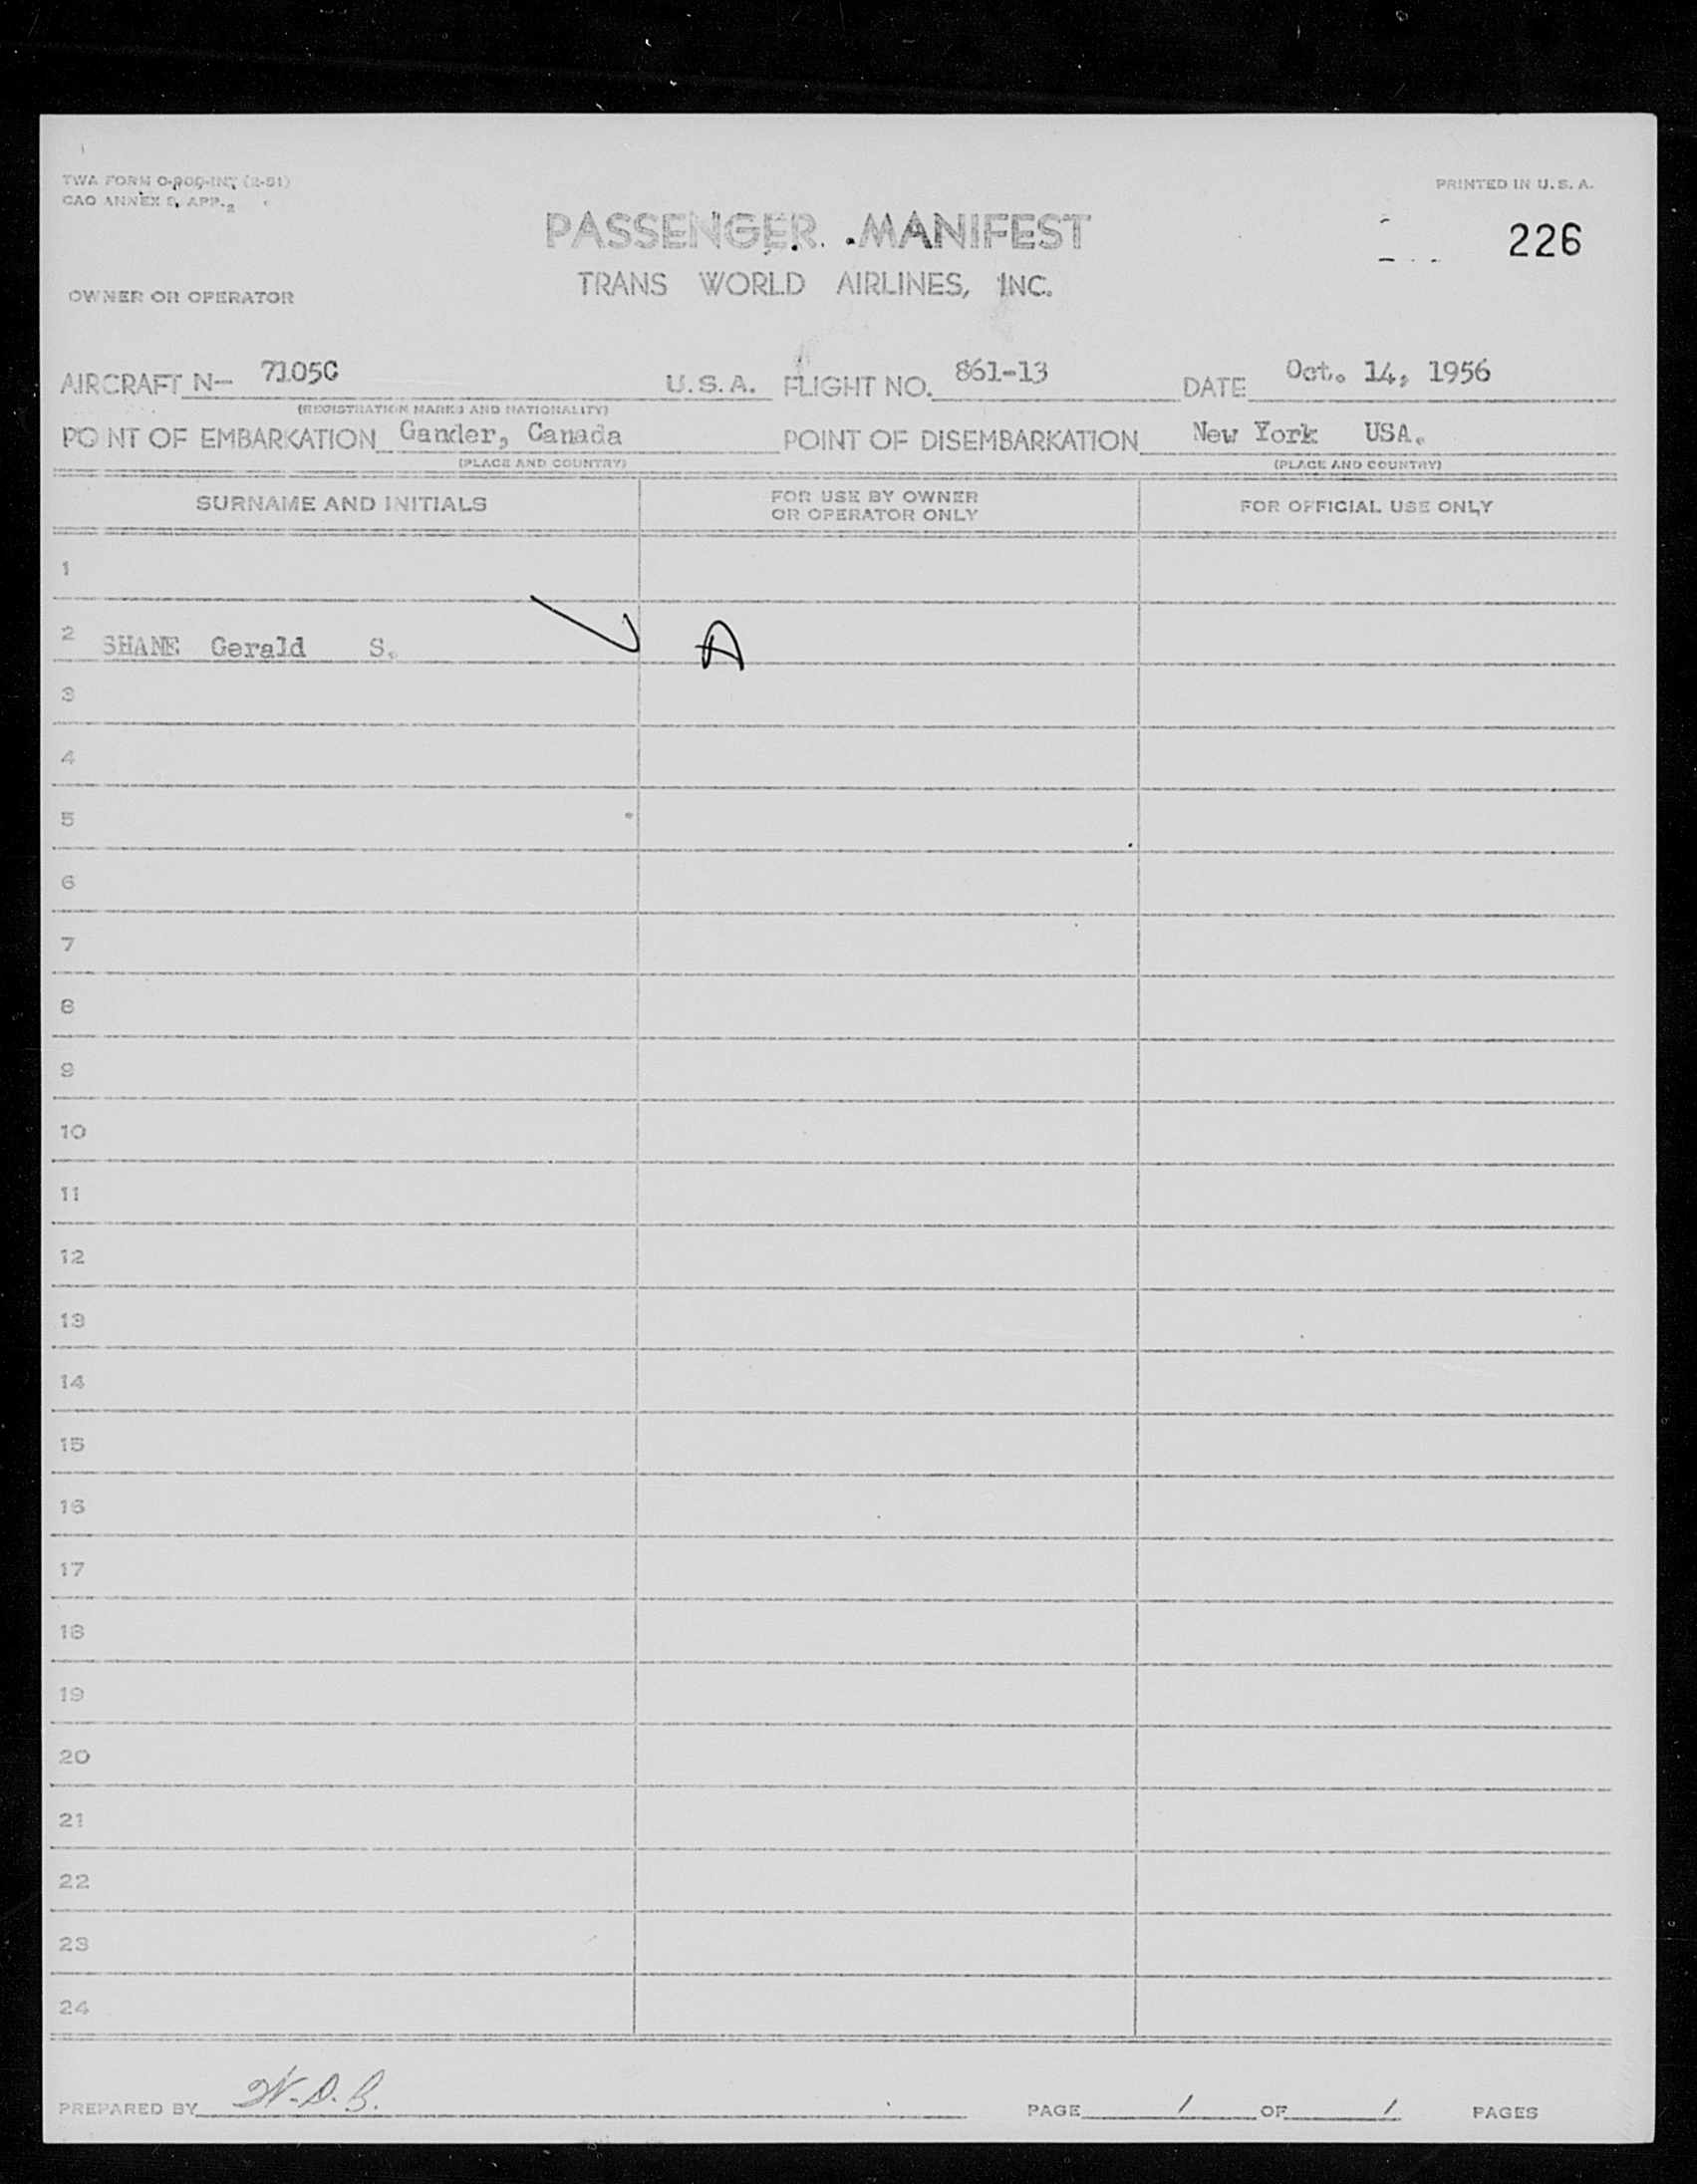 TWA FORM O-909-INT (2-51)
PRINTED IN U.S.A.
CAO ANNEX 9, APP. 2
PASSENGER MANIFEST
226
TRANS WORLD AIRLINES, INC.
OWNER OR OPERATOR
AIRCRAFT N- 7105C U.S.A. FLIGHT NO. 861-13 DATE Oct. 14, 1956
(REGISTRATION MARKS AND NATIONALITY)
POINT OF EMBARKATION Gander, Canada POINT OF DISEMBARKATION New York USA.
(PLACE AND COUNTRY) (PLACE AND COUNTRY)
SURNAME AND INITIALS FOR USE BY OWNER OR OPERATOR ONLY FOR OFFICIAL USE ONLY
1
2 SHANE Gerald S. A
3
4
5
6
7
8
9
10
11
12
13
14
15
16
17
18
19
20
21
22
23
24
PREPARED BY PAGE 1 OF 1 PAGES